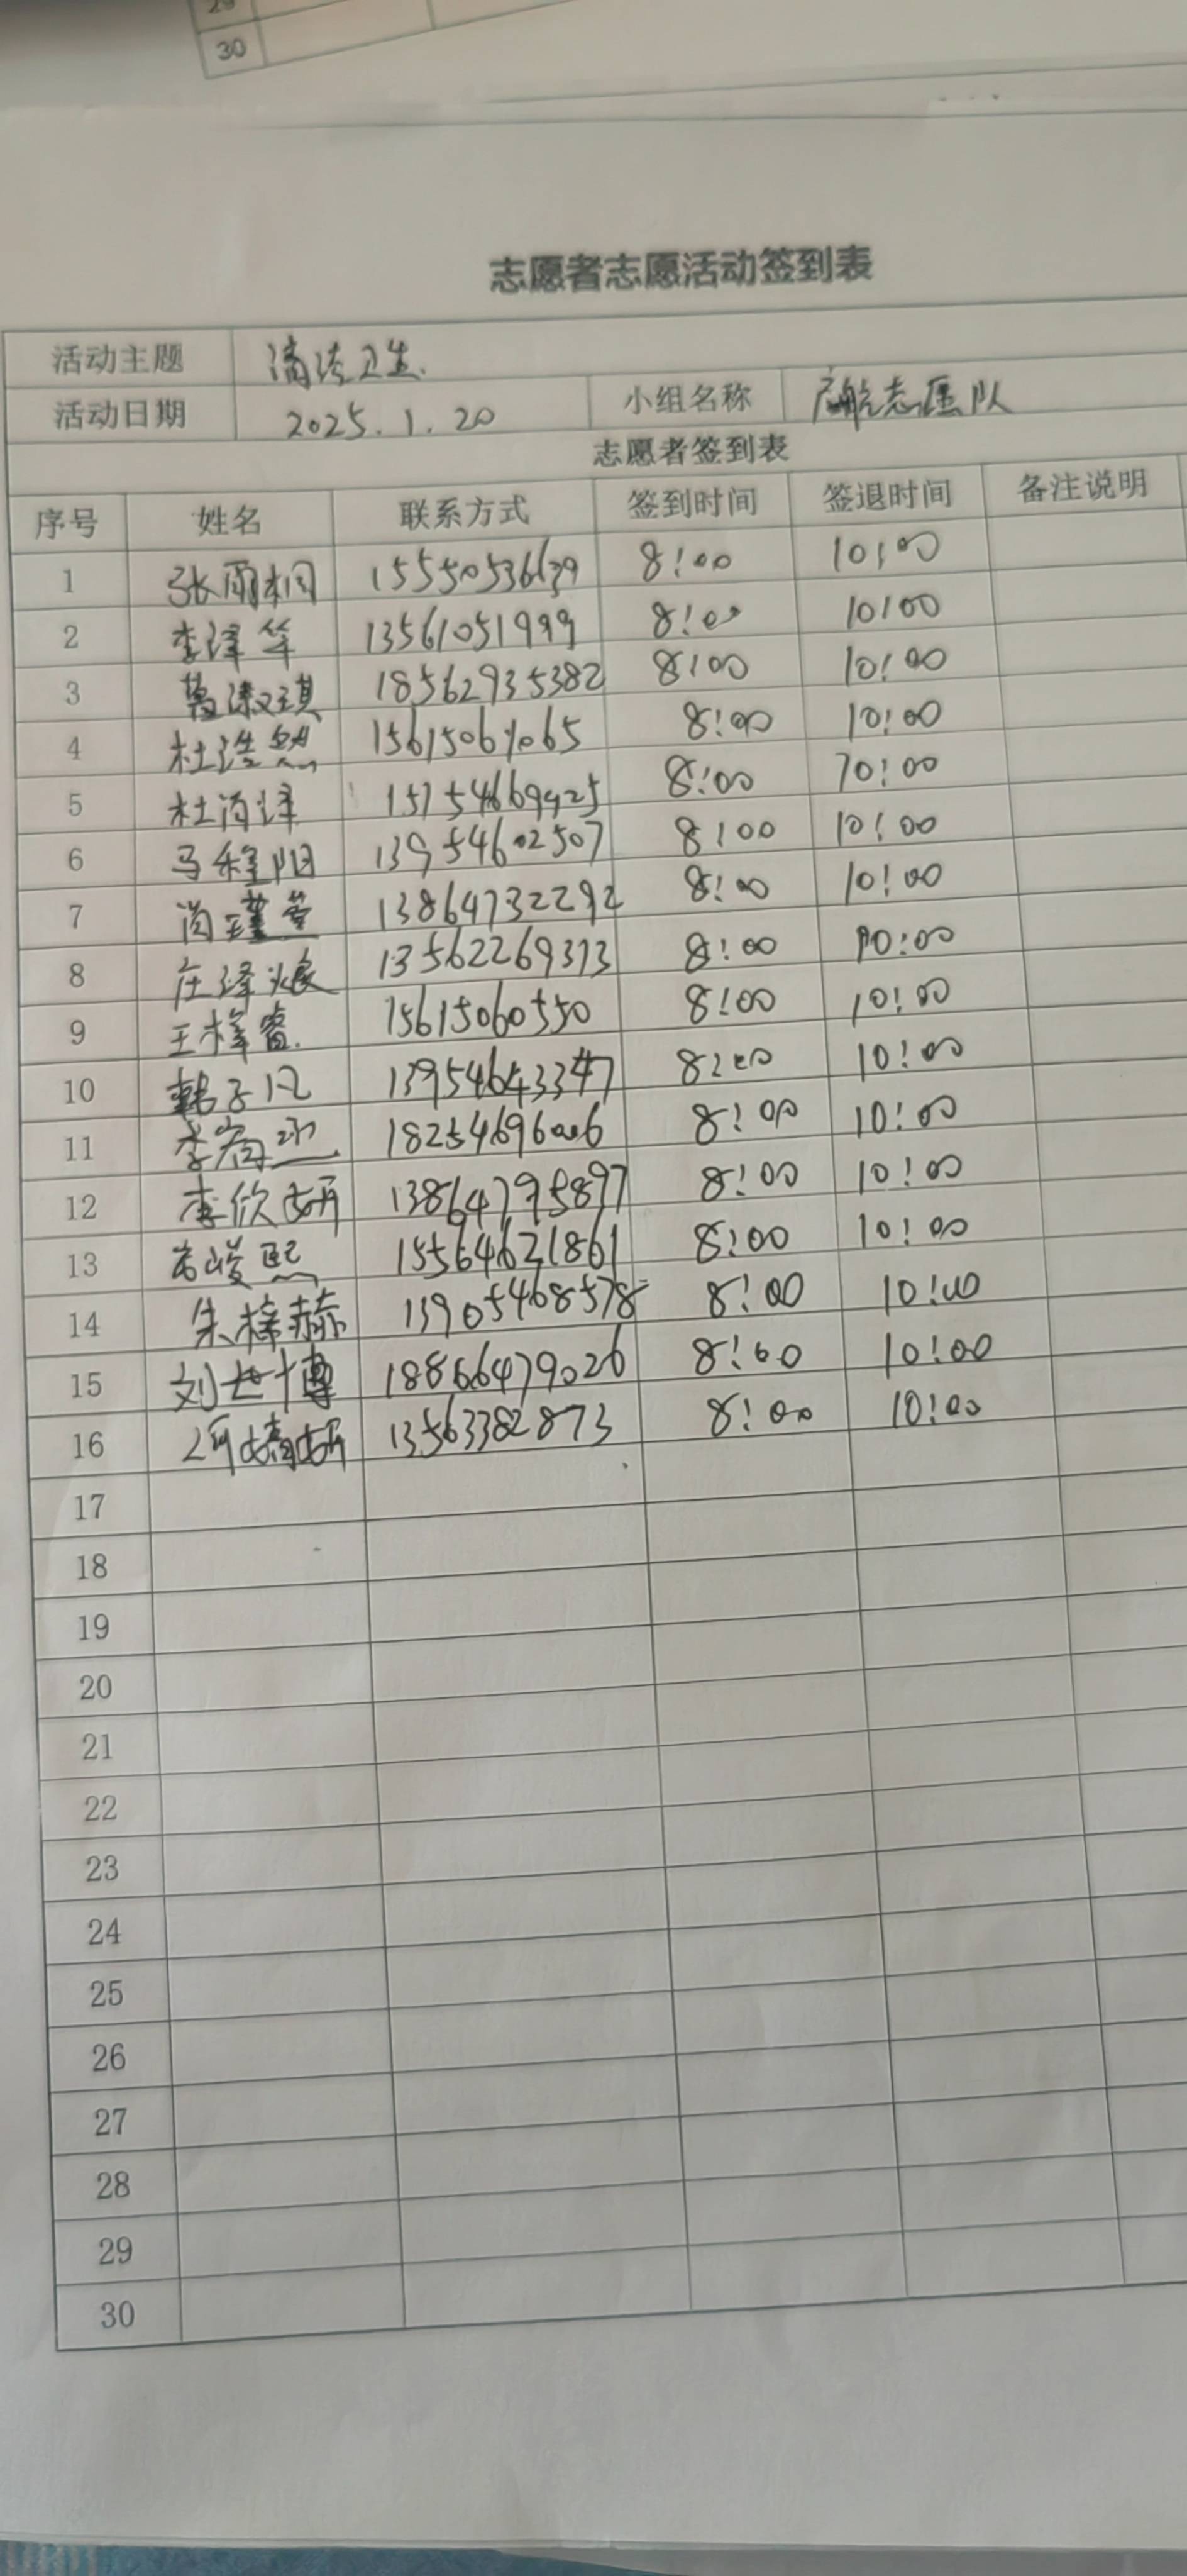 29
30
志愿者志愿活动签到表
活动主题 清洁卫生.
活动日期 2025.1.20 小组名称 启航志愿队
志愿者签到表
序号 姓名 联系方式 签到时间 签退时间 备注说明
1 张雨桐 8:00 10:00
2 李泽华 13561051999 8:00 10:00
3 18562935382 8:00 10:00
4 杜浩然 8:00 10:00
5 杜尚泽 8:00 70:00
6 马程阳 13954602507 8:00 10:00
7 尚瑾萱 13864732292 8:00 10:00
8 13562269313 8:00 10:00
9 王梓睿. 15615060550 8:00 10:00
10 韩子凡 13954643347 8:00 10:00
11 8:00 10:00
12 李欣妍 13864795897 8:00 10:00
13 15564621861 8:00 10:00
14 朱梓赫 13905468578 8:00 10:00
15 刘世博 18866479026 8:00 10:00
16 13563382873 8:00 10:00
17
18
19
20
21
22
23
24
25
26
27
28
29
30